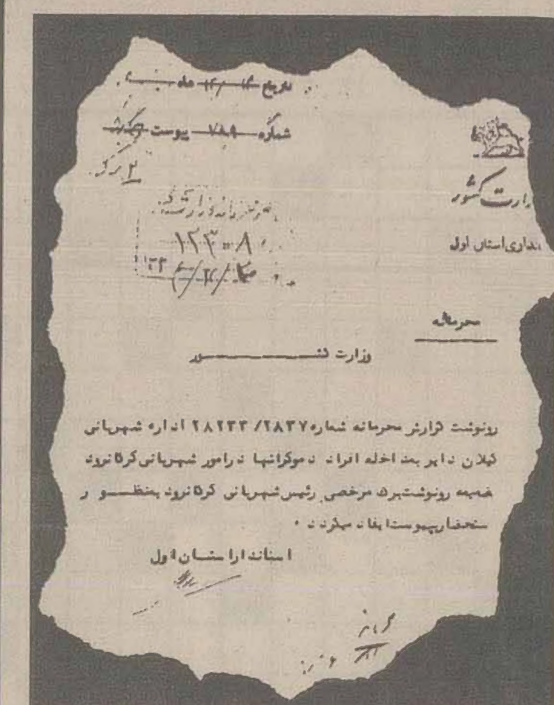 تاریخ ۱۴ / ۱۲ / ماه
شماره ۷۸۹ پیوست
۲ برگ
۱۲۳۰۸
وزارت کشور
استانداری استان اول
محرمانه
وزارت کشور
رونوشت گزارش محرمانه شماره ۲۸۲۳۳/۲۸۳۷ اداره شهربانی
گیلان دایر بمداخله افراد دموکراتها در امور شهربانی کرگانرود
ضمیمه رونوشت برگ مرخصی رئیس شهربانی کرگانرود بمنظور
استحضار پیوست ایفاد میگردد.
استاندار استان اول